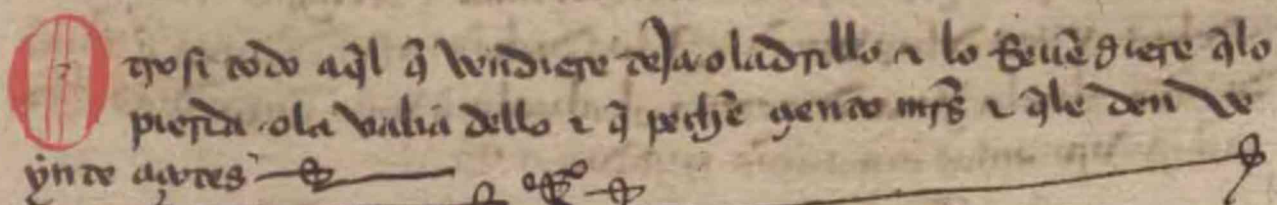 Otrosi todo aql̃ q̃ vendiere teja o ladrillo ⁊ lo Reuẽdiere q̃lo
pierda o la valia dello ⁊ q̃ peche çiento mrs̃ ⁊ q̃le den ve
ynte açotes